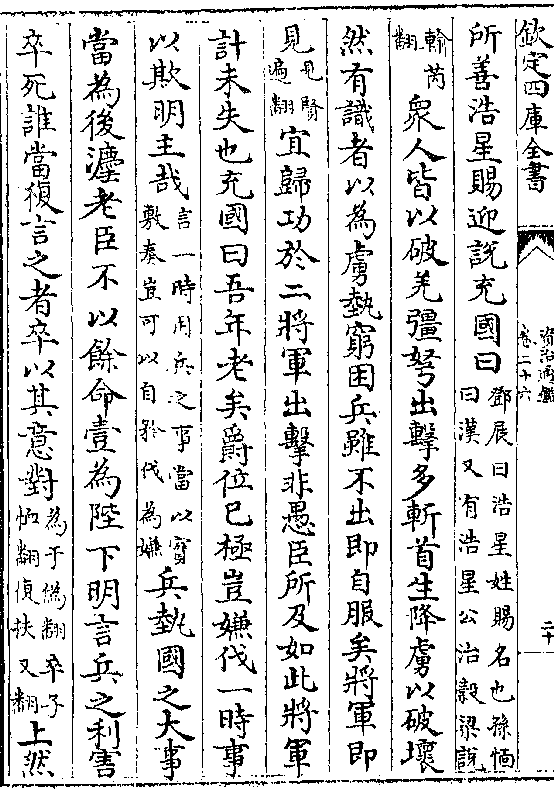 欽定四庫全書
資治通鑑
卷二十六
二十
所善浩星賜迎説充國曰鄧展曰浩星姓賜名也孫愐曰漢又有浩星公治穀梁説
翰芮翻衆人皆以破羌彊弩出擊多斬首生降虜以破壞
然有識者以為虜埶窮困兵雖不出即自服矣將軍即
見見賢遍翻宜歸功於二將軍出擊非愚臣所及如此將軍
計未失也充國曰吾年老矣爵位已極豈嫌伐一時事
以欺明主哉言一時用兵之事當以實敷奏豈可以自矜伐為嫌兵埶國之大事
當為後灋老臣不以餘命壹為陛下明言兵之利害
卒死誰當復言之者卒以其意對為于偽翻卒子恤翻復扶又翻上然